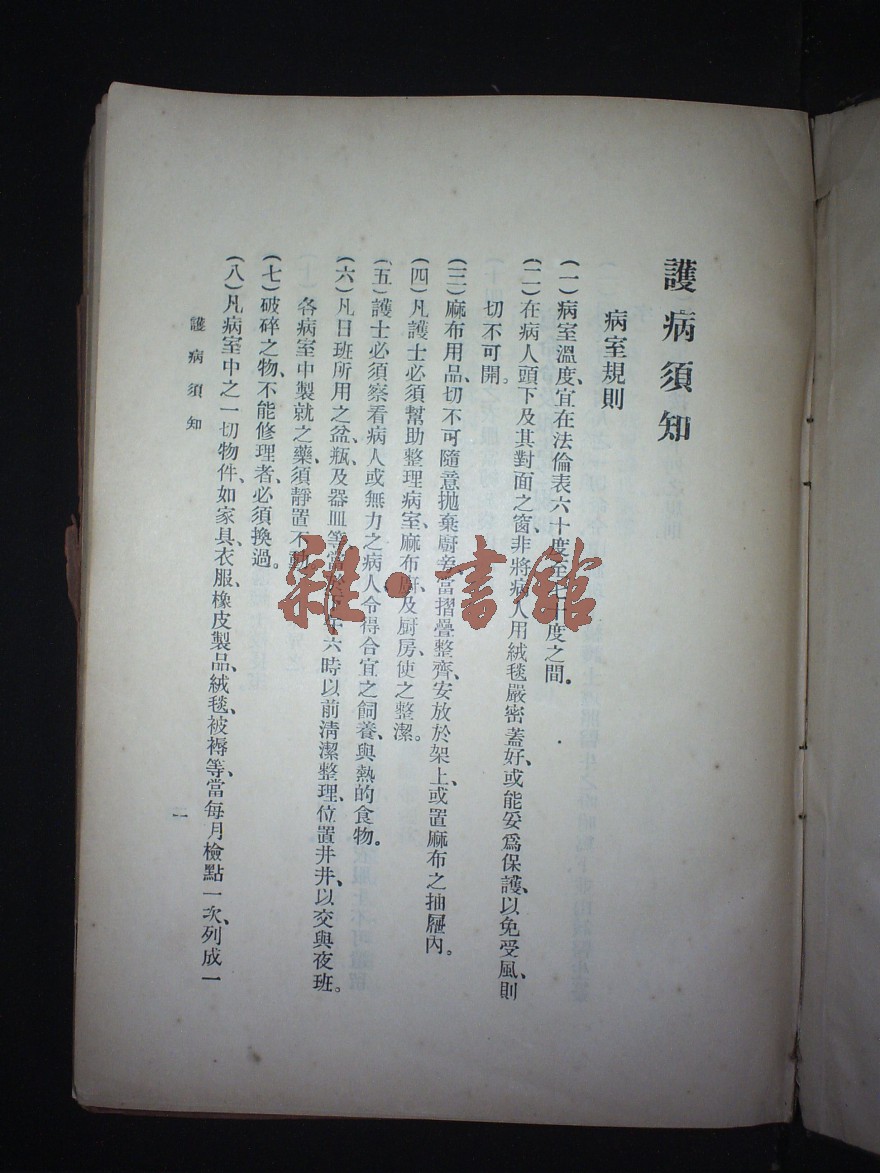 護病須知
病室規則
(一)病室溫度、宜在法倫表六十度至七十度之間。
(二)在病人頭下及其對面之窗、非將病人用絨毯嚴密蓋好、或能妥爲保護、以免受風、則
切不可開。
(三)麻布用品、切不可隨意拋棄廚旁、當摺疊整齊、安放於架上、或置麻布之抽屜內。
(四)凡護士必須幫助整理病室、麻布廚、及厨房、使之整潔。
(五)護士必須察看病人或無力之病人、令得合宜之飼養、與熱的食物。
(六)凡日班所用之盆、瓶、及器皿等、當於下午六時以前清潔整理、位置井井、以交與夜班。
各病室中製就之藥、須靜置不動。
(七)破碎之物、不能修理者、必須換過。
(八)凡病室中之一切物件、如家具、衣服、橡皮製品、絨毯、被褥等、當每月檢點一次、列成一
護病須知
一
雜·書館